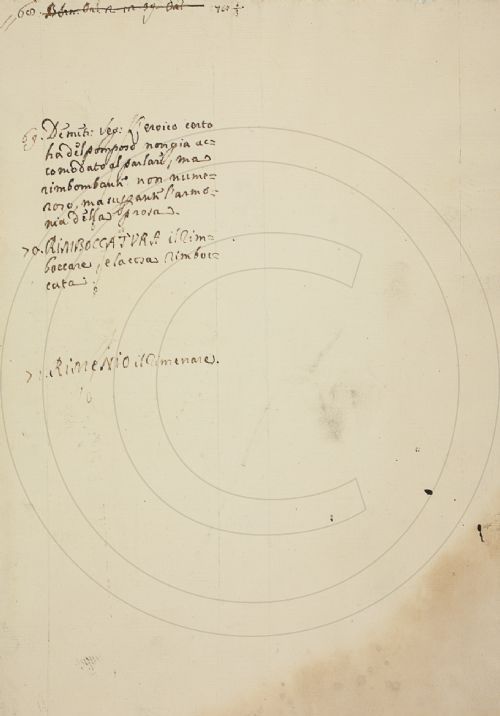 68.
69. Demetr: seg: L'eroico certo
ha del pomposo non già ac=
comodato al parlare, ma
rimbombante non nume=
roso, ma superante l'armo=
nia della prosa.
70. RIMBOCCATURA il Rim=
boccare, e la cosa rimboc=
cata.
71. RIMENIO il Rimenare.